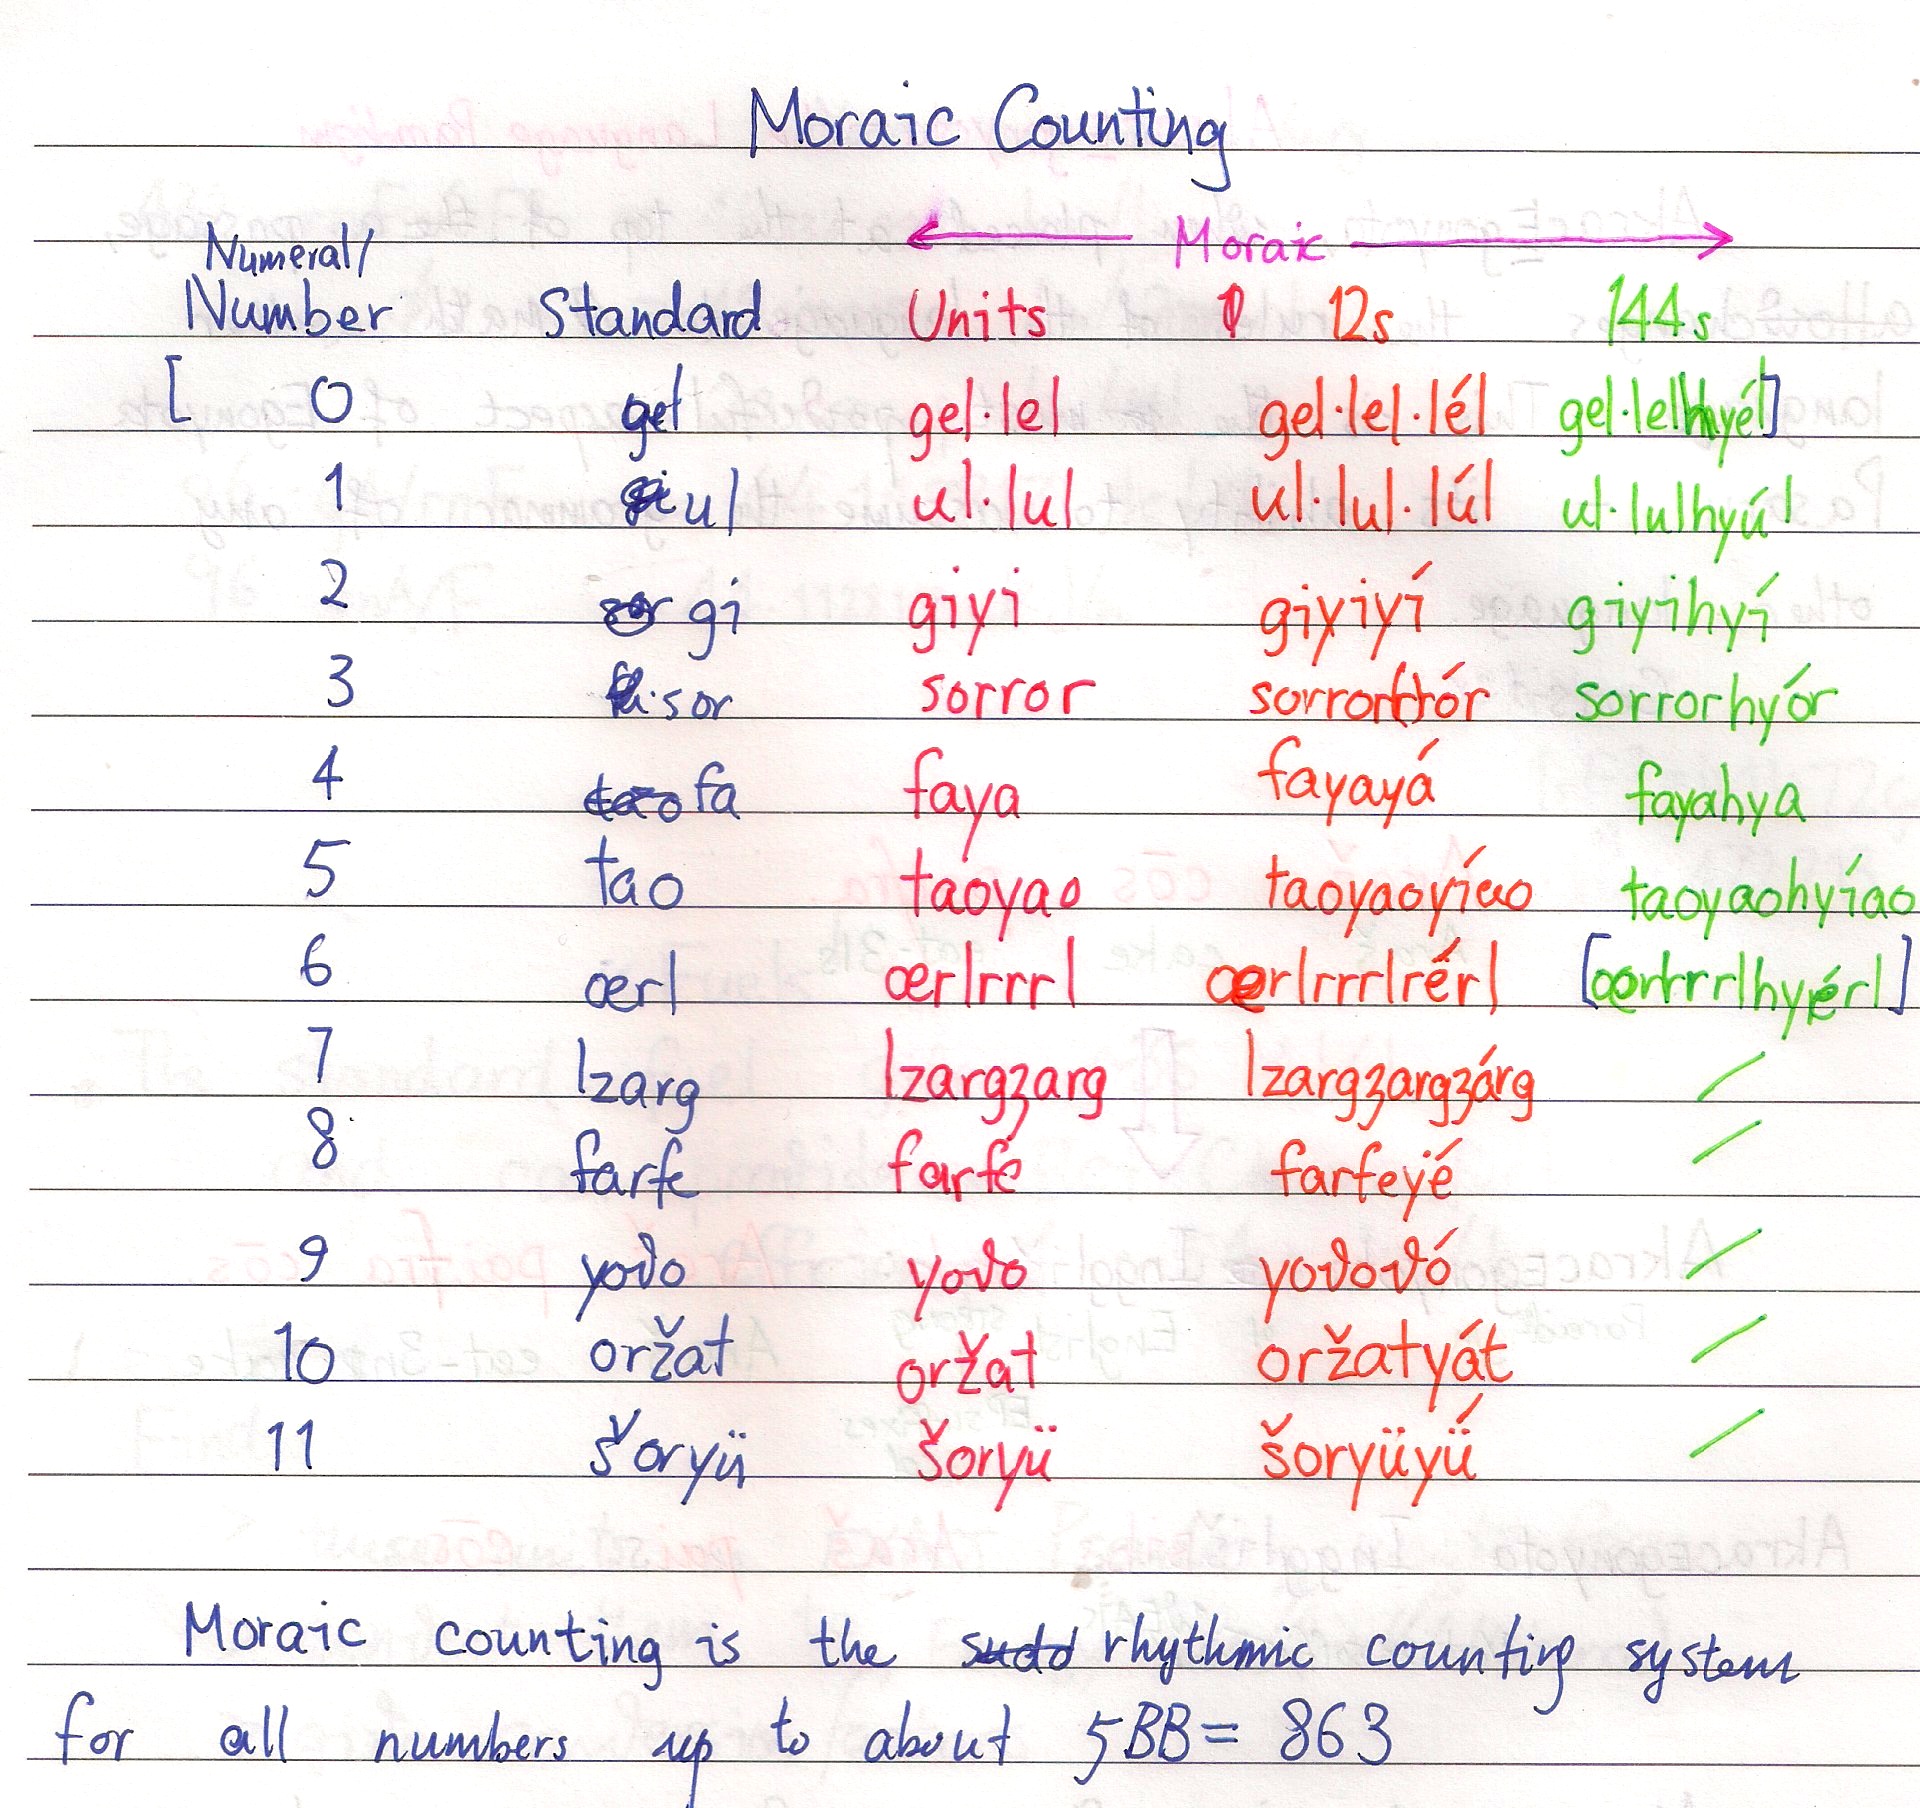 Moraic Counting
Numeral/ ← Moraic →
Number Standard Units 12s 144s
[ 0 gel gel·lel gel·lel·lél gel·lelhyél]
1 ul ul·lul ul·lul·lúl ul·lulhyúl
2 gi giyi giyiyí giyihyí
3 sor sorror sorrorrór sorrorhyór
4 fa faya fayayá fayahya
5 tao taoyao taoyaoyíao taoyaohyíao
6 œrl œrlrrrl œrlrrrlrérl [œrlrrrlhyérl]
7 lzarg lzargʒarg lzargʒargʒárg /
8 farfe farfe farfeyé /
9 yoϑo yoϑo yoϑoϑó /
10 oržat oržat oržatyát /
11 šoryü šoryü šoryüyǘ /
Moraic counting is the rhythmic counting system
for all numbers up to about 5BB = 863